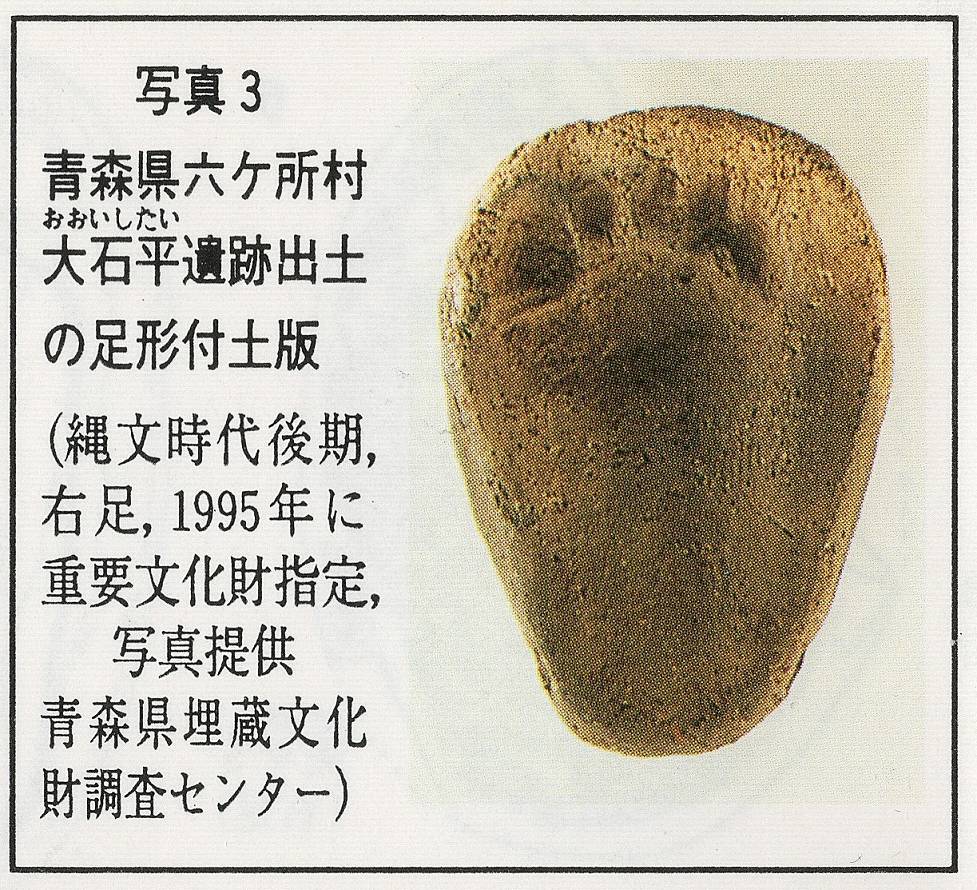 写真3
青森県六ケ所村
おおいしたい
大石平遺跡出土
の足形付土版
(縄文時代後期,
右足, 1995年に
重要文化財指定,
写真提供
青森県埋蔵文化
財調査センター)